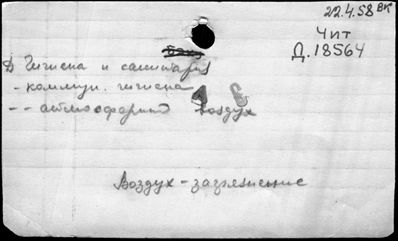 22.4.58 ВК
Чит
Д.18564
Д Гигиена и санитария
- коммун. гигиена
- - атмосферный воздух
Воздух - загрязнение